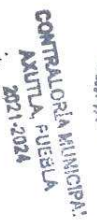 CONTRALORÍA MUNICIPAL
AXUTLA, PUEBLA
2021-2024